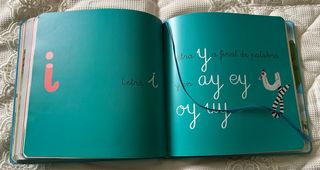 i
Letra i
letra y a final de palabra
ay ey
oy uy